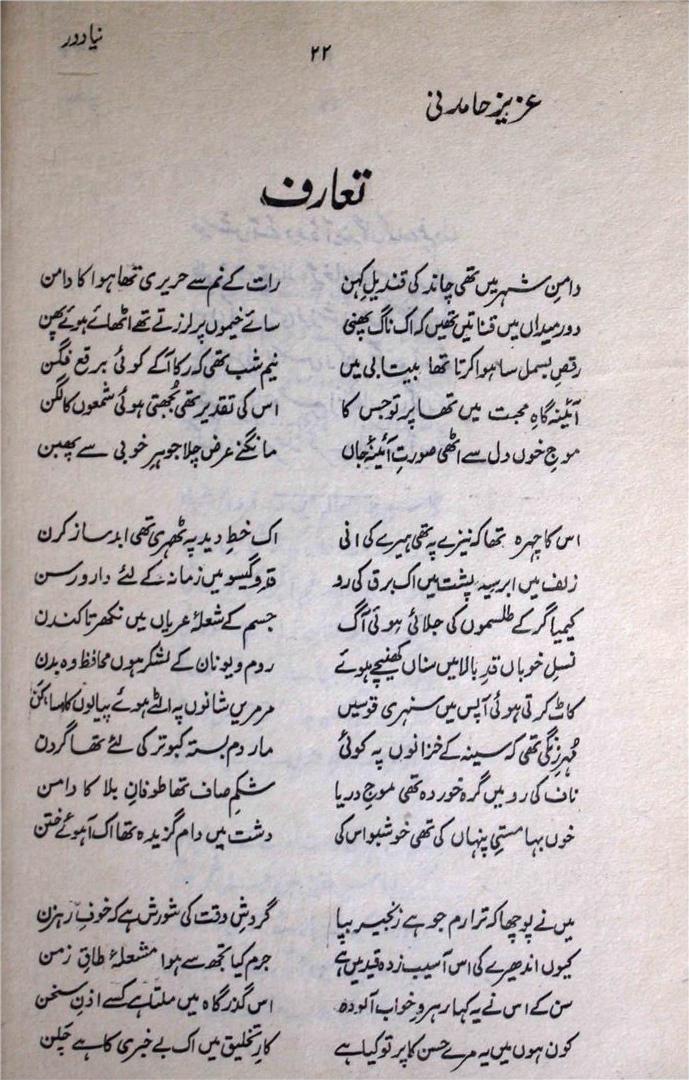 نیا دور
۲۲
عزیز حامد مدنی
تعارف
دامنِ شہر میں تھی چاند کی قندیلِ کہن رات کے نم سے حریری تھا ہوا کا دامن
دور میداں میں قناتیں تھیں کہ اک ناگ پھنی سائے خیموں پر لرزتے تھے اٹھائے ہوئے پھن
رقصِ بسمل سا ہوا کرتا تھا بیتابی میں نیم شب تھی کہ رکا آکے کوئی برقع فگن
آئینہ گاہِ محبت میں تھا پرتو جس کا اس کی تقدیر تھی بجھتی ہوئی شمعوں کا لگن
موجِ خوں دل سے اٹھی صورتِ آئینۂ جاں مانگنے عرض چلا جوہرِ خوبی سے پھبن
اس کا چہرہ تھا کہ نیزے پہ تھی ہیرے کی انی اک خطِ دید پہ ٹھہری تھی ابد ساز کرن
زلف میں ابرِ سیہ پشت میں اک برق کی رو قد و گیسو میں زمانہ کے لئے دار و رسن
کیمیا گر کے طلسموں کی جلائی ہوئی آگ جسم کے شعلۂ عریاں میں نکھرتا کندن
نسلِ خوباں قدِ بالا میں سناں کھینچے ہوئے روم و یونان کے لشکر ہوں محافظ وہ بدن
کاٹ کرتی ہوئی آپس میں سنہری قوسیں مرمریں شانوں پہ الٹے ہوئے پیالوں کا
مُہر زنگی تھی کہ سینہ کے خزانوں پہ کوئی مار دم بستہ کبوتر کی لئے تھا گردن
ناف کی رو میں گرہ خوردہ تھی موجِ دریا شکمِ صاف تھا طوفانِ بلا کا دامن
خوں بہا مستیِ پنہاں کی تھی خوشبو اس کی دشت میں دام گزیدہ تھا اک آہوئے ختن
میں نے پوچھا کہ ترا رم جو ہے زنجیر بپا گردشِ وقت کی شورش ہے کہ خوفِ رہزن
کیوں اندھیرے کی اس آسیب زدہ قید میں ہے جرم کیا تجھ سے ہوا مشعلۂ طاقِ زمن
سن کے اس نے یہ کہا رہروِ خواب آلودہ اس گذرگاہ میں ملتا ہے کسے اذنِ سخن
کون ہوں میں یہ مرے حسن کا پرتو کیا ہے کارِ تخلیق میں اک بے خبری کا ہے چلن